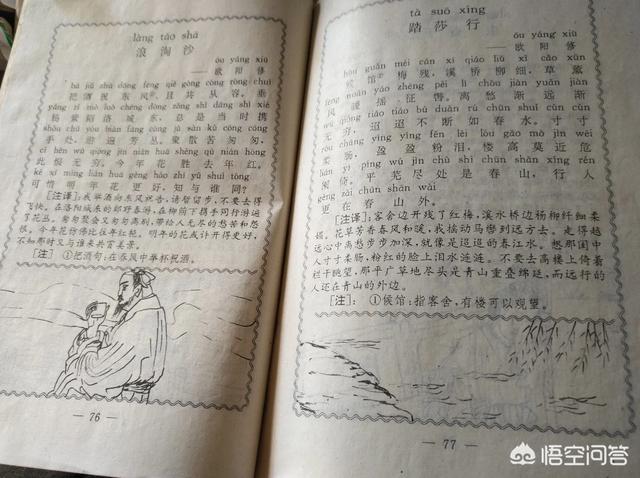 làng táo shā
浪淘沙
ōu yáng xiū
——欧阳修
bǎ jiǔ zhù dōng fēng qiě gòng cóng róng chuí
把酒祝东风①,且共从容。垂
yáng zǐ mò luò chéng dōng zǒng shì dāng shí xié
杨紫陌洛城东,总是当时携
shǒu chù yóu biàn fāng cóng jù sàn kǔ cōng cōng
手处,游遍芳丛。聚散苦匆匆,
cǐ hèn wú qióng jīn nián huā shèng qù nián hóng
此恨无穷。今年花胜去年红。
kě xī míng nián huā gèng hǎo zhī yǔ shuí tóng
可惜明年花更好,知与谁同?
[注译]:我举酒向东风祝告:请暂留步,不要去得
飞快。在洛阳城东的郊野春游,在柳荫下携手同行游遍
了花丛。匆匆聚会又匆匆离别,带给人无尽的愁苦和怨
恨。今年花仿佛比往年红艳。明年的花或计开得更好,
不知那时又与谁来共赏美景。
[注] ①把酒句:在春风中举杯祝酒。
— 76 —
tà suō xíng
踏莎行
ōu yáng xiū
——欧阳修
hòu guǎn méi cán xī qiáo liǔ xì cǎo xūn
候馆①梅残,溪桥柳细,草薰
fēng nuǎn yáo zhēng pèi lí chóu jiàn yuǎn jiàn
风暖摇征辔。离愁渐远渐
wú qióng tiáo tiáo bù duàn rú chūn shuǐ cùn cùn
无穷,迢迢不断如春水。寸寸
róu cháng yíng yíng fěn lèi lóu gāo mò jìn wēi
柔肠,盈盈粉泪。楼高莫近危
lán yǐ píng wú jìn chù shì chūn shān xíng rén
阑倚。平芜尽处是春山,行人
gèng zài chūn shān wài
更在春山外。
[注译]:客舍边开残了红梅,溪水桥边杨柳纤细柔
媚。花草芳香春风和暖,我摇动马辔到远方去。走得越
远心中离愁步步加深,就像是迢迢的春江水。想那闺中
人寸寸柔肠,粉红的脸上泪水涟涟。不要去高楼上倚着
栏干眺望,那平广草地尽头是青山重叠绵延,而远行的
人还在青山的外边。
[注]: ①侯馆:指客舍,有楼可以观望。
— 77 —
悟空问答